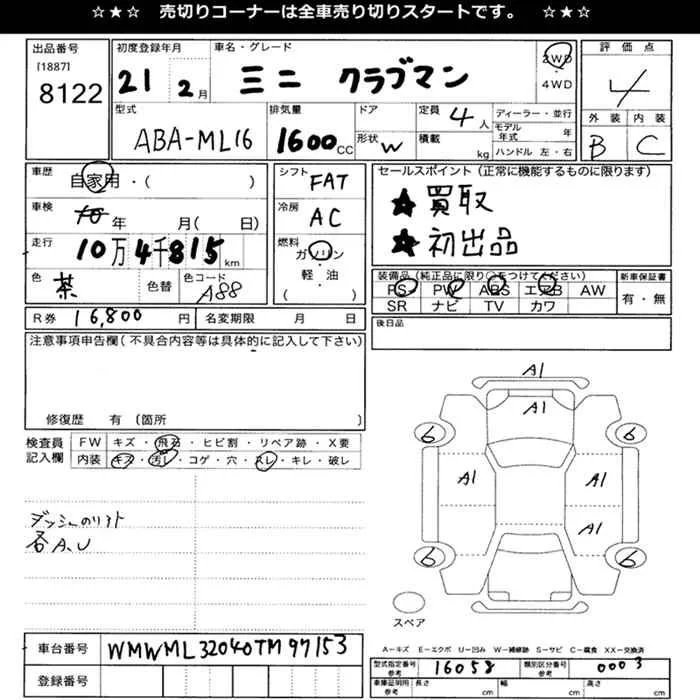 ☆★☆ 売切りコーナーは全車売り切りスタートです。 ☆★☆
出品番号
[1887]
8122
初度登録年月
21 2月
車名・グレード
ミニ クラブマン
2WD
・
4WD
評価点
4
外装 内装
B C
型式
ABA-ML16
排気量
1600cc
ドア
形状 W
定員 4人
積載 kg
ディーラー・並行
モデル年式 年
ハンドル 左・右
車歴
自家用・( )
車検
10年 月( 日)
走行
10万4千815km
色
茶
色替
色コード
A88
シフト
FAT
冷房
AC
燃料
ガソリン
・
軽・油
( )
セールスポイント(正常に機能するものに限ります)
★買取
★初出品
装備品(純正品に限り○をつけてください)
PS PW ABS エアB AW
SR ナビ TV カワ
新車保証書
有・無
R券 16,800円 名変期限 月 日
後日品
注意事項申告欄(不具合内容等は具体的に記入して下さい)
修復歴 有(箇所 )
検査員記入欄
FW キズ・飛石・ヒビ割・リペア跡・X要
内装 キズ・汚レ・コゲ・穴・スレ・キレ・破レ
ダッシュのリフト
各A、U
A1
A1
6 6
A1 A1
A1
6 6
スペア
A-キズ E-エクボ U-凹み W-補修跡 S-サビ C-腐食 XX-交換済
車台番号 WMWML32040TM97153
登録番号
型式指定番号 参考 16058 類別区分番号 参考 0003
車庫証明用 参考 長さ cm 幅 cm 高さ cm